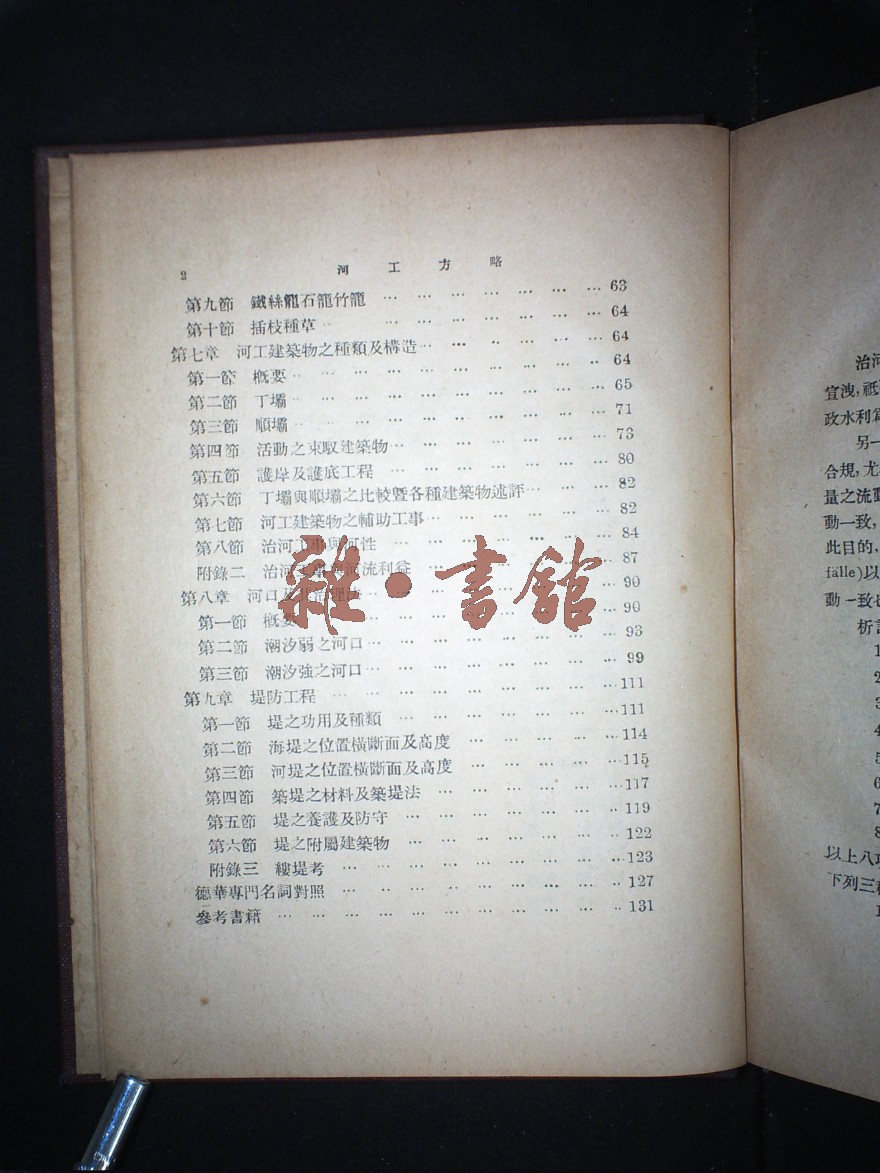 2 河工方略
第九節 鐵絲籠石籠竹籠 … … … … … … … 63
第十節 插枝種草 … … … … … … … … 64
第七章 河工建築物之種類及構造 … … … … … … 64
第一節 概要 … … … … … … … … … 64
第二節 丁壩 … … … … … … … … … 65
第三節 順壩 … … … … … … … … … 71
第四節 活動之束馭建築物 … … … … … … … 73
第五節 護岸及護底工程 … … … … … … … 80
第六節 丁壩與順壩之比較曁各種建築物述評 … … … 82
第七節 河工建築物之輔助工事 … … … … … … 82
第八節 治河工事與河性 … … … … … … … 84
附錄二 治河 與河流利益 … … … … … … 87
第八章 河口及其治理法 … … … … … … … 90
第一節 概要 … … … … … … … … 90
第二節 潮汐弱之河口 … … … … … … … … 93
第三節 潮汐強之河口 … … … … … … … … 99
第九章 堤防工程 … … … … … … … … … 111
第一節 堤之功用及種類 … … … … … … … 111
第二節 海堤之位置橫斷面及高度 … … … … … 114
第三節 河堤之位置橫斷面及高度 … … … … … 115
第四節 築堤之材料及築堤法 … … … … … … 117
第五節 堤之養護及防守 … … … … … … … 119
第六節 堤之附屬建築物 … … … … … … … 122
附錄三 縷堤考 … … … … … … … … … 123
德華專門名詞對照 … … … … … … … … … 127
參考書籍 … … … … … … … … … … … 131
雜·書館
治河
宣洩，祇
政水利
另一
合規，尤
量之流動
動一致，
此目的，
fälle)以
動一致也
析
1
2
3
4
5
6
7
8
以上八項
下列三
1